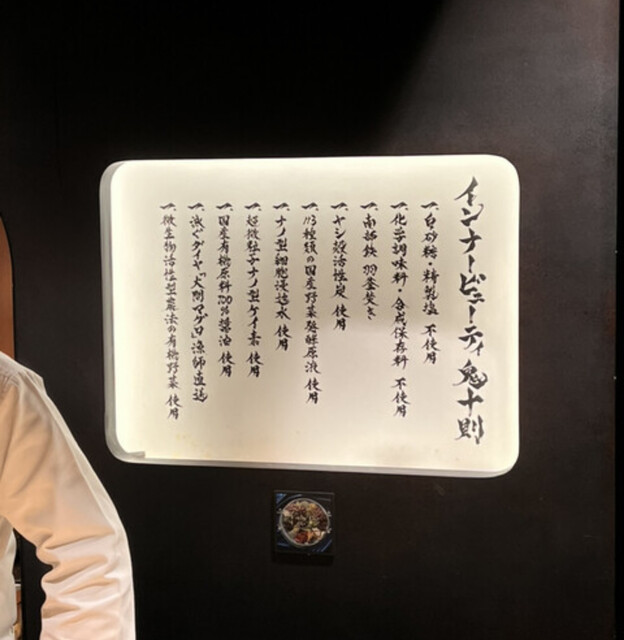 インナービューティ 鬼十則
一、白砂糖・精製塩 不使用
一、化学調味料・合成保存料 不使用
一、南部鉄 羽釜焚き
一、ヤシ殻活性炭 使用
一、113種類の国産野菜発酵原液 使用
一、ナノ型細胞浸透水 使用
一、超微粒子ナノ型ケイ素 使用
一、国産有機原料200%醤油 使用
一、海のダイヤ「大間マグロ」漁師直送
一、微生物活性型農法の有機野菜 使用